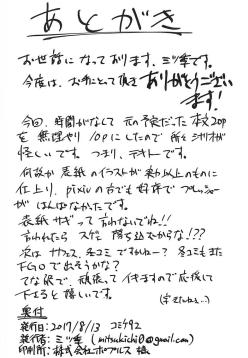 あとがき
お世話になっております、ミツ季です。
今度は、お手にとって頂き ありがとうござい
ます!
今回、時間がなくて 元の予定だった 本文20p
を 無理やり 10pにしたので 所々 シナリオが
怪しいです。つまり、テキトーです。
何故か 表紙のイラストが 予想以上のものに
仕上り、pixivの方でも 好評で プレッシャー
が はんぱなかったです。
表紙サギって 言わないでね!!
言われたら スゲェ 落ち込むからな!??
次は サフェス、冬コミ ですかねー? 冬コミもまた
FGOで出そうかな?
てな訳で、頑張って イキますので 応援して
下さると 嬉しいです。
奥付
発行日:2017/8/13 コミケ92
発行者:ミツ季 (mitsukichi0@gmail.com)
印刷所:株式会社 ポプルス 様